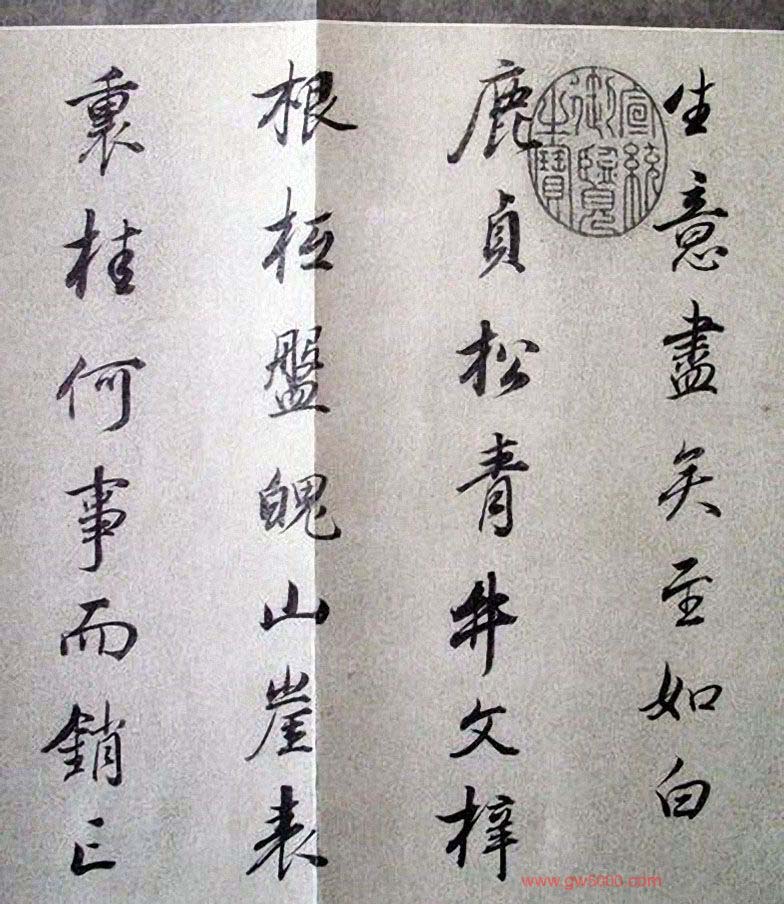 生意盡矣至如白
鹿貞松青牛文梓
根柢盤魄山崖表
裏桂何事而銷亡
宣統御覽之寶
www.gw5000.com